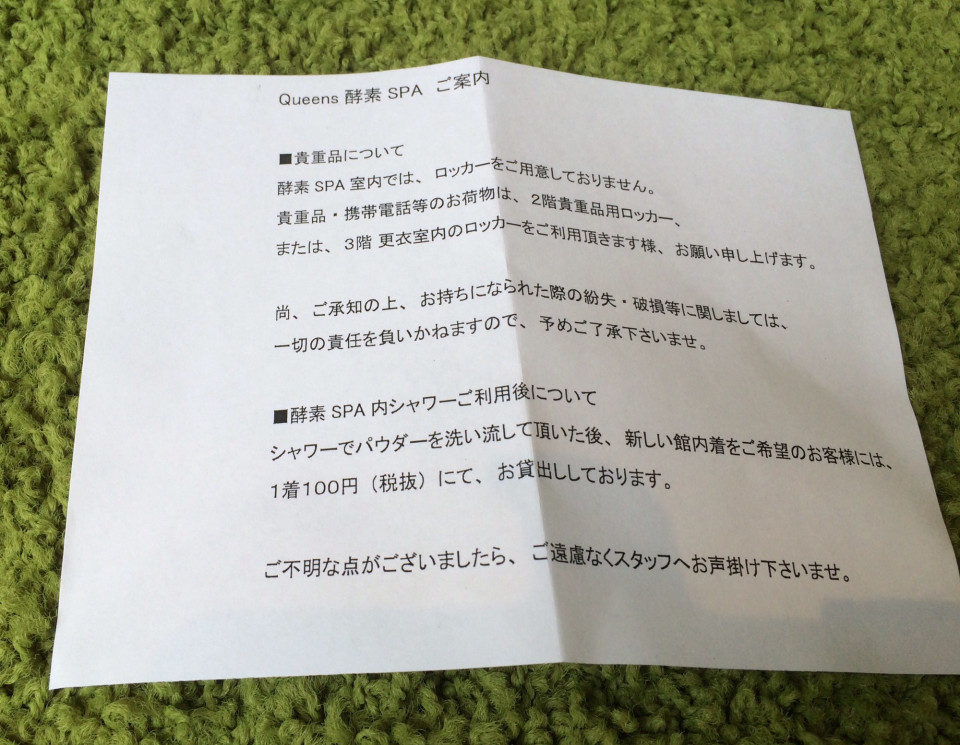 Queens 酵素 SPA ご案内
■貴重品について
酵素 SPA 室内では、ロッカーをご用意しておりません。
貴重品・携帯電話等のお荷物は、2階貴重品用ロッカー、
または、3階 更衣室内のロッカーをご利用頂きます様、お願い申し上げます。
尚、ご承知の上、お持ちになられた際の紛失・破損等に関しましては、
一切の責任を負いかねますので、予めご了承下さいませ。
■酵素 SPA 内シャワーご利用後について
シャワーでパウダーを洗い流して頂いた後、新しい館内着をご希望のお客様には、
1着100円（税抜）にて、お貸出ししております。
ご不明な点がございましたら、ご遠慮なくスタッフへお声掛け下さいませ。